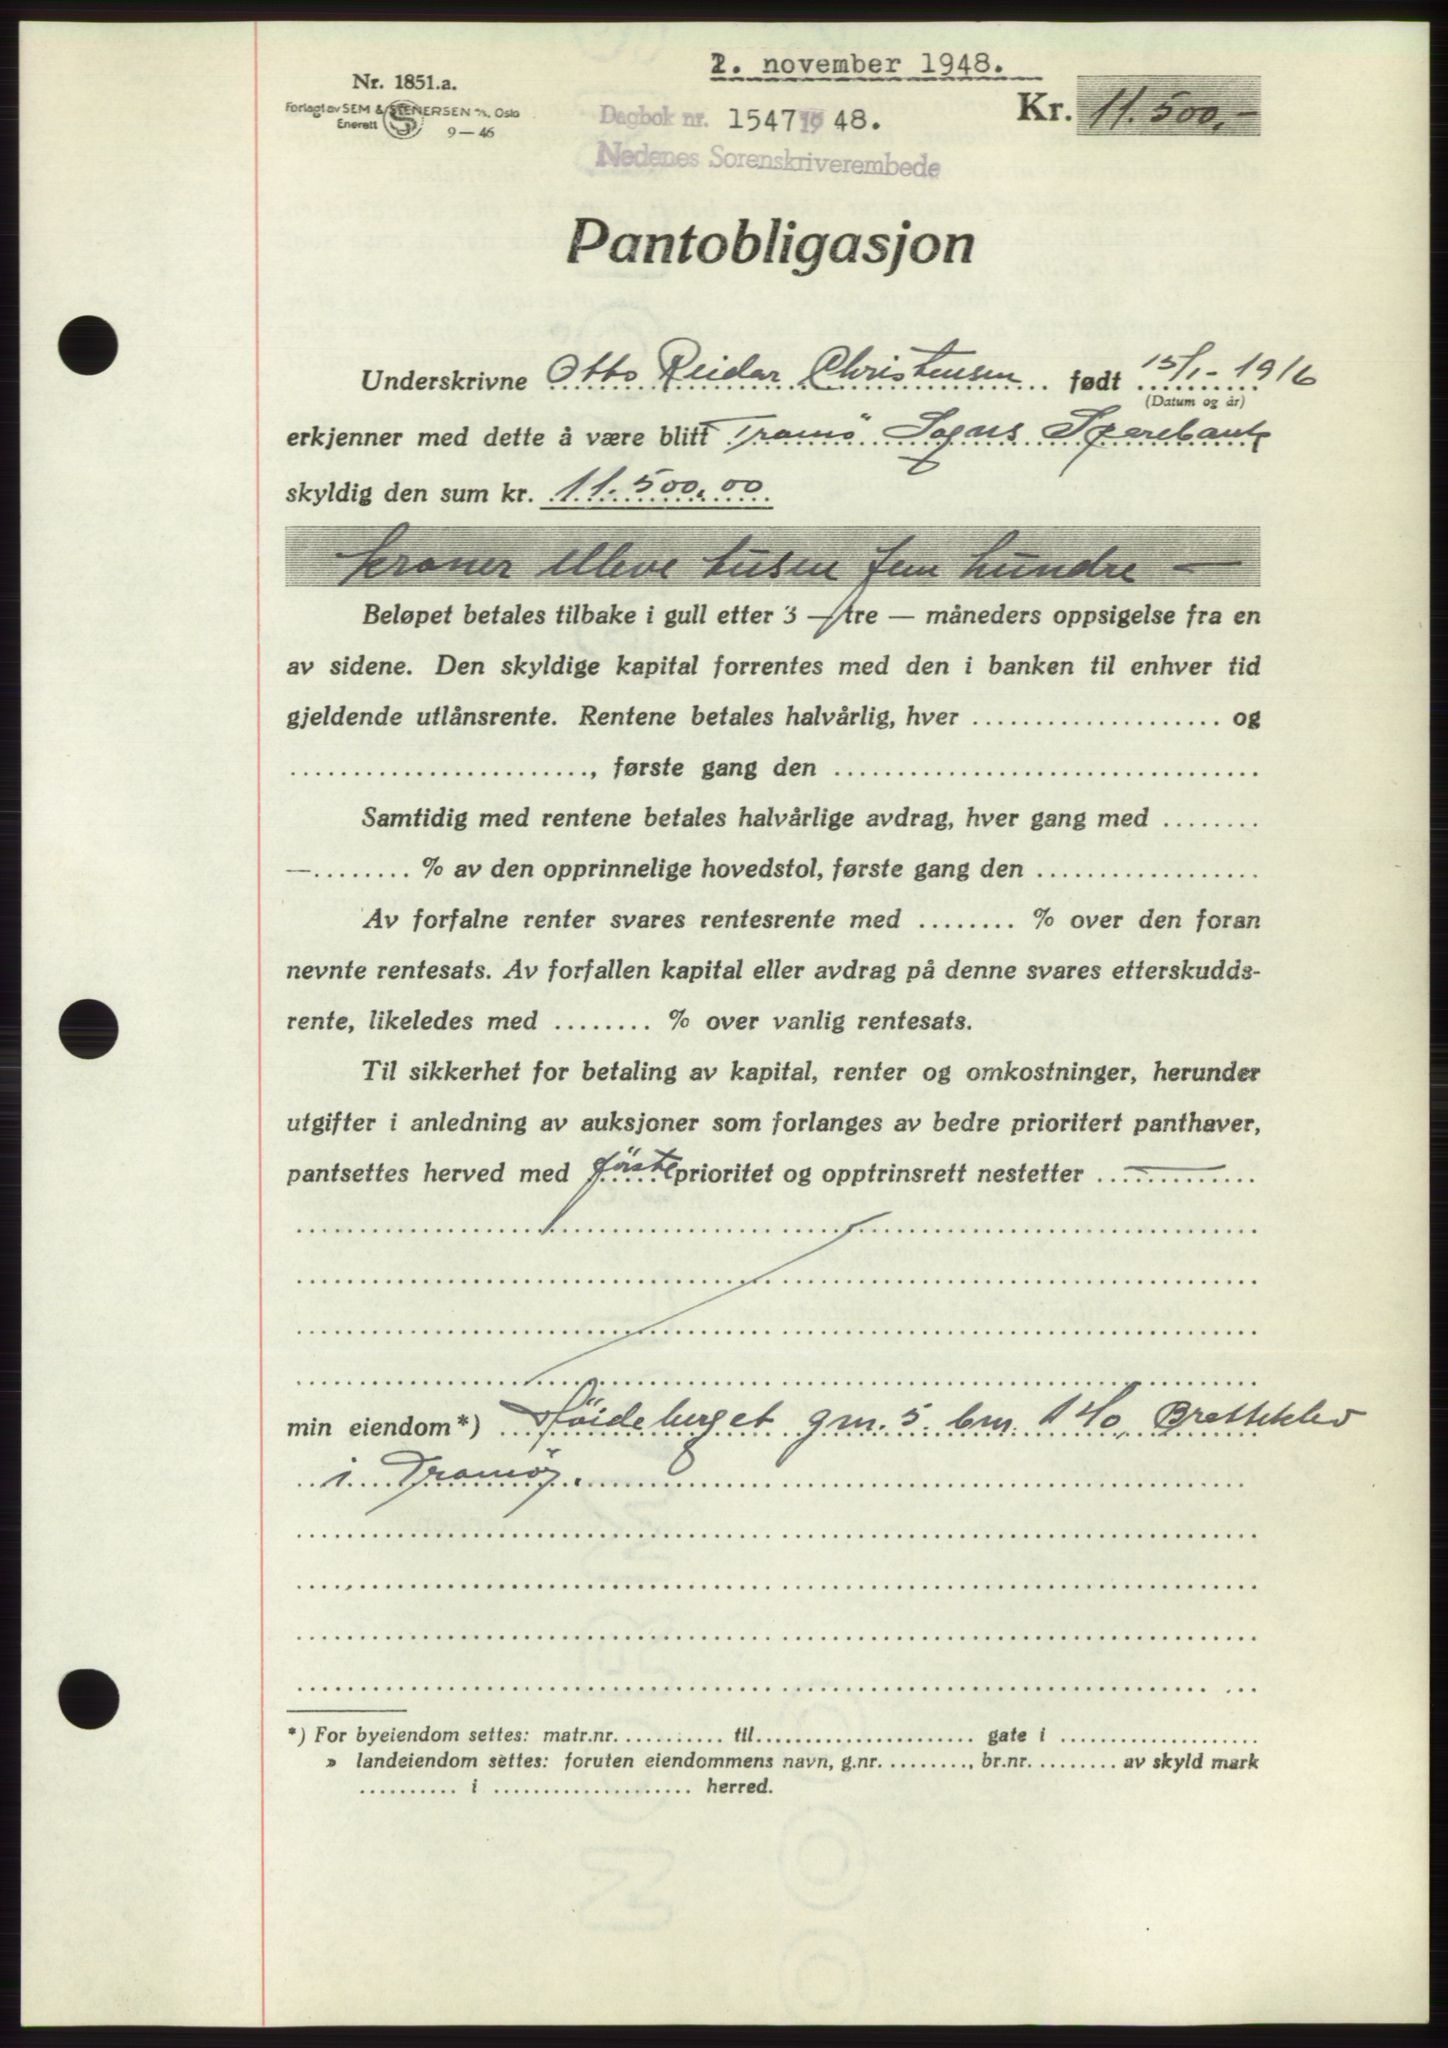 2. november 1948.
Nr. 1851.a.
Forlagt av SEM & STENERSEN A/S, Oslo
Enerett 9—46
Kr. 11.500,-
Dagbok nr. 1547 19 48.
Nedenes Sorenskriverembede
Pantobligasjon
Underskrivne Otto Reidar Christensen født 15/1-1916
(Datum og år)
erkjenner med dette å være blitt Tromö Sogns Sparebank
skyldig den sum kr. 11.500.00
kroner elleve tusen fem hundre —
Beløpet betales tilbake i gull etter 3 — tre — måneders oppsigelse fra en
av sidene. Den skyldige kapital forrentes med den i banken til enhver tid
gjeldende utlånsrente. Rentene betales halvårlig, hver .................... og
........................, første gang den ..................................
Samtidig med rentene betales halvårlige avdrag, hver gang med ........
—........ % av den opprinnelige hovedstol, første gang den ..................
Av forfalne renter svares rentesrente med ........ % over den foran
nevnte rentesats. Av forfallen kapital eller avdrag på denne svares etterskudds-
rente, likeledes med ........ % over vanlig rentesats.
Til sikkerhet for betaling av kapital, renter og omkostninger, herunder
utgifter i anledning av auksjoner som forlanges av bedre prioritert panthaver,
pantsettes herved med förste prioritet og opptrinsrett nestetter .............
min eiendom*) Höideberget gm. 5. bm. 140, Bratteklev
i Tromöy.
*) For byeiendom settes: matr.nr. .......... til ...................... gate i ....................
» landeiendom settes: foruten eiendommens navn, g.nr. ........, br.nr. ......... av skyld mark
.......... i .................... herred.